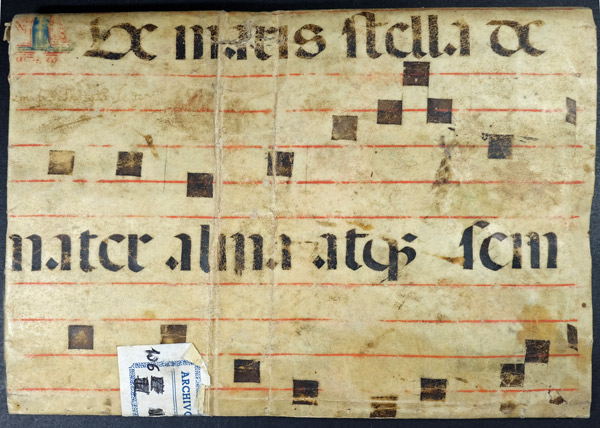 AVe maris stella de
mater alma atqꝫ sem
ARCHIVO